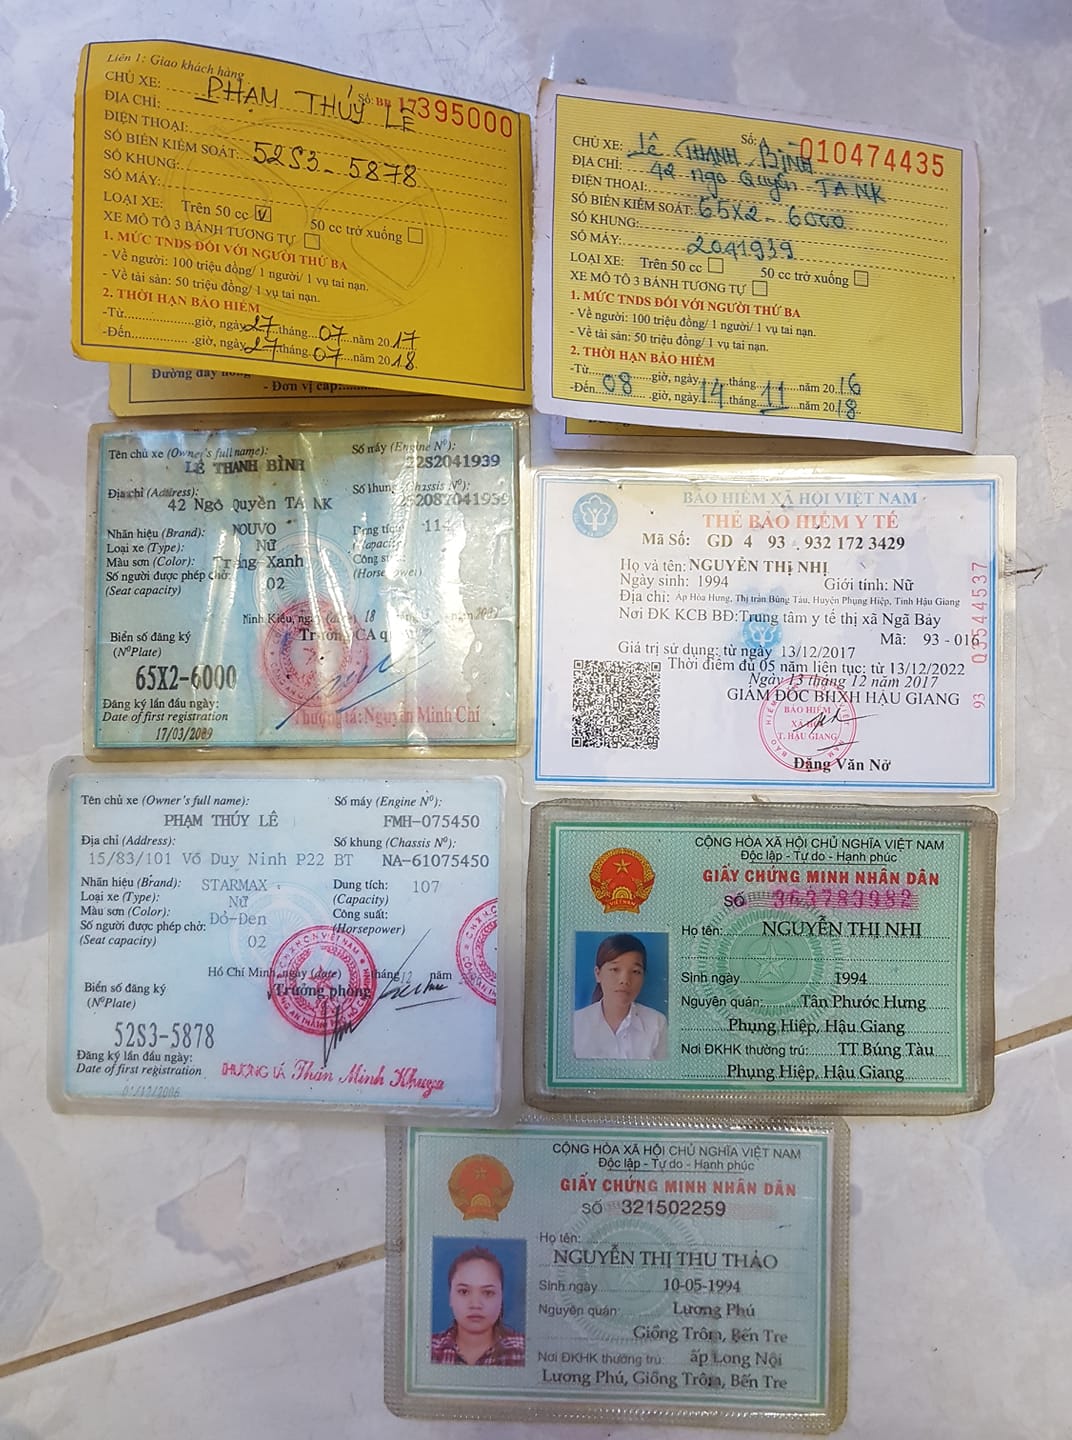 Liên 1: Giao khách hàng
Số: BB 17395000
CHỦ XE: PHẠM THÚY LÊ
ĐỊA CHỈ:
ĐIỆN THOẠI:
SỐ BIỂN KIỂM SOÁT: 52S3-5878
SỐ KHUNG:
SỐ MÁY:
LOẠI XE: Trên 50 cc 50 cc trở xuống
XE MÔ TÔ 3 BÁNH TƯƠNG TỰ
1. MỨC TNDS ĐỐI VỚI NGƯỜI THỨ BA
- Về người: 100 triệu đồng/ 1 người/ 1 vụ tai nạn.
- Về tài sản: 50 triệu đồng/ 1 vụ tai nạn.
2. THỜI HẠN BẢO HIỂM
-Từ giờ, ngày 27 tháng 07 năm 2017
-Đến giờ, ngày 27 tháng 07 năm 2018
Đường dây nóng
- Đơn vị cấp:
Số: 010474435
CHỦ XE: Lê THANH BÌNH
ĐỊA CHỈ: 42 ngô Quyền TA NK
ĐIỆN THOẠI:
SỐ BIỂN KIỂM SOÁT: 65X2-6000
SỐ KHUNG:
SỐ MÁY: 2041939
LOẠI XE: Trên 50 cc 50 cc trở xuống
XE MÔ TÔ 3 BÁNH TƯƠNG TỰ
1. MỨC TNDS ĐỐI VỚI NGƯỜI THỨ BA
- Về người: 100 triệu đồng/ 1 người/ 1 vụ tai nạn.
- Về tài sản: 50 triệu đồng/ 1 vụ tai nạn.
2. THỜI HẠN BẢO HIỂM
-Từ 08 giờ, ngày 14 tháng 11 năm 2016
-Đến giờ, ngày tháng năm 2018
Tên chủ xe (Owner's full name): Số máy (Engine Nº):
LÊ THANH BÌNH 22S2041939
Địa chỉ (Address): Số khung (Chassis Nº):
42 Ngô Quyền TA NK
Nhãn hiệu (Brand): NOUVO Dung tích
Loại xe (Type): Nữ (Capacity)
Màu sơn (Color): Trắng-Xanh Công suất
Số người được phép chở: 02 (Horsepower)
(Seat capacity)
Ninh Kiều, ngày (date) 18
Trưởng CA
Biển số đăng ký
(NºPlate)
65X2-6000
Đăng ký lần đầu ngày:
Date of first registration
17/03/2009
Thượng tá: Nguyễn Minh Chí
BẢO HIỂM XÃ HỘI VIỆT NAM
THẺ BẢO HIỂM Y TẾ
Mã Số: GD 4 93 932 172 3429
Họ và tên: NGUYỄN THỊ NHỊ
Ngày sinh: 1994 Giới tính: Nữ
Địa chỉ: Ấp Hòa Hưng, Thị trấn Búng Tàu, Huyện Phụng Hiệp, Tỉnh Hậu Giang
Nơi ĐK KCB BĐ: Trung tâm y tế thị xã Ngã Bảy
Mã: 93 - 016
Giá trị sử dụng: từ ngày 13/12/2017
Thời điểm đủ 05 năm liên tục: từ 13/12/2022
Ngày 13 tháng 12 năm 2017
GIÁM ĐỐC BHXH HẬU GIANG
BẢO HIỂM
XÃ HỘI
T. HẬU GIANG
Đặng Văn Nở
93 03544537
Tên chủ xe (Owner's full name): Số máy (Engine Nº):
PHẠM THÚY LÊ FMH-075450
Địa chỉ (Address): Số khung (Chassis Nº):
15/83/101 Võ Duy Ninh P22 BT NA-61075450
Nhãn hiệu (Brand): STARMAX Dung tích: 107
Loại xe (Type): Nữ (Capacity)
Màu sơn (Color): Đỏ-Đen Công suất:
Số người được phép chở: 02 (Horsepower)
(Seat capacity)
Hồ Chí Minh, ngày (date) tháng 12 năm
Trưởng phòng
Biển số đăng ký
(NºPlate)
52S3-5878
Đăng ký lần đầu ngày:
Date of first registration
THƯỢNG TÁ Trần Minh Khuya
CỘNG HÒA XÃ HỘI CHỦ NGHĨA VIỆT NAM
Độc lập - Tự do - Hạnh phúc
GIẤY CHỨNG MINH NHÂN DÂN
SỐ 363783982
Họ tên: NGUYỄN THỊ NHỊ
Sinh ngày 1994
Nguyên quán: Tân Phước Hưng
Phụng Hiệp, Hậu Giang
Nơi ĐKHK thường trú: TT Búng Tàu
Phụng Hiệp, Hậu Giang
CỘNG HÒA XÃ HỘI CHỦ NGHĨA VIỆT NAM
Độc lập - Tự do - Hạnh phúc
GIẤY CHỨNG MINH NHÂN DÂN
SỐ 321502259
Họ tên:
NGUYỄN THỊ THU THẢO
Sinh ngày 10-05-1994
Nguyên quán: Lương Phú
Giồng Trôm, Bến Tre
Nơi ĐKHK thường trú: ấp Long Nội
Lương Phú, Giồng Trôm, Bến Tre